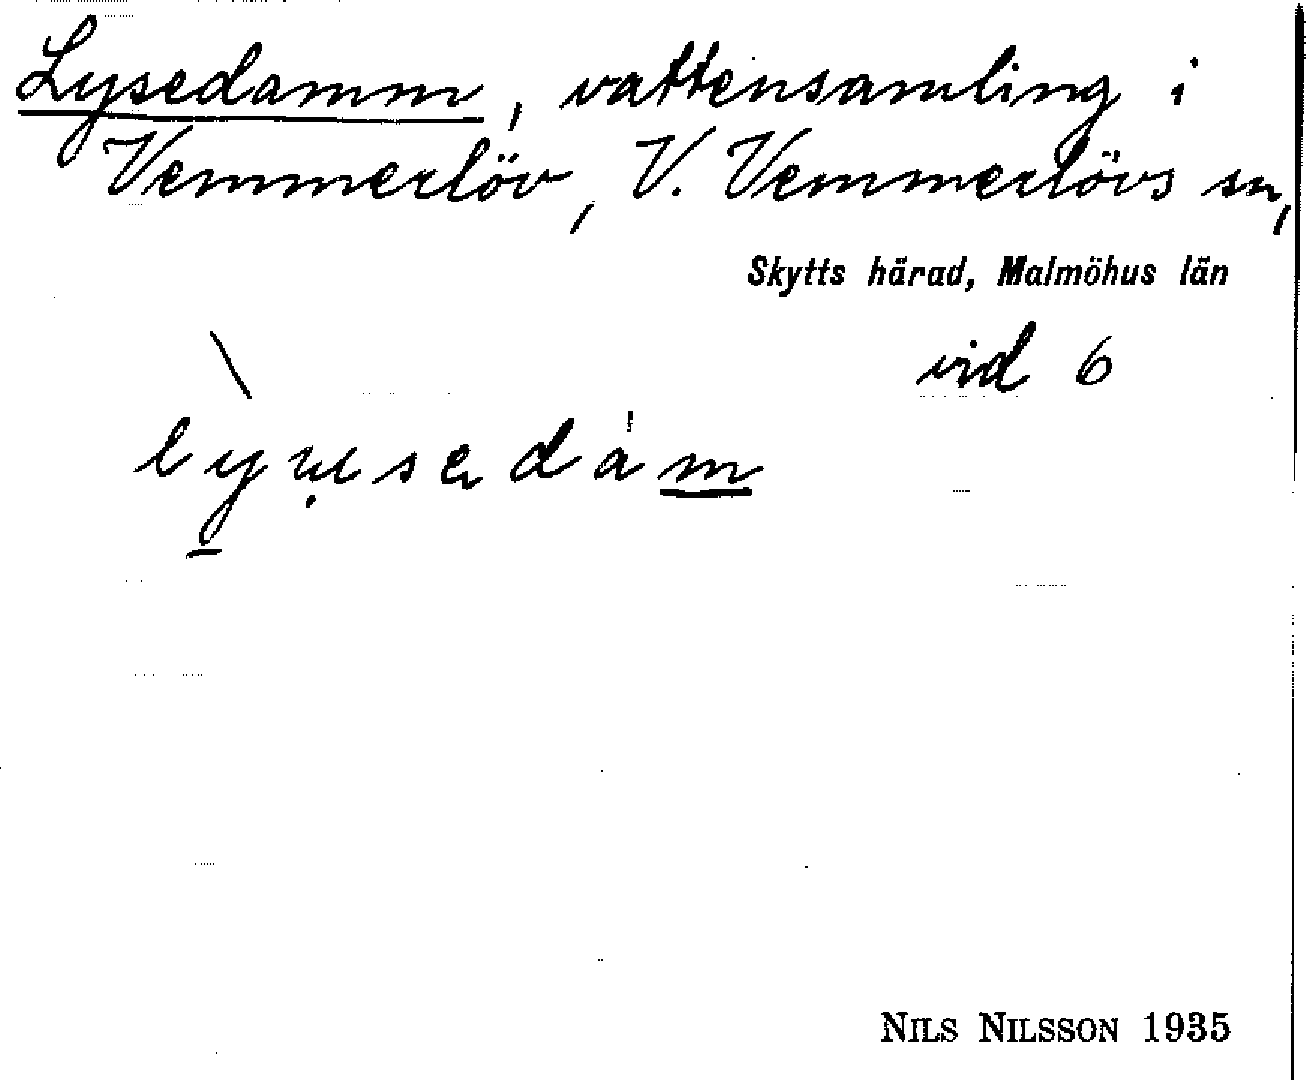 Lysedamm, vattensamling i
Vemmerlöv, V. Vemmerlövs sn,
Skytts härad, Malmöhus län
vid 6
NILS NILSSON 1935